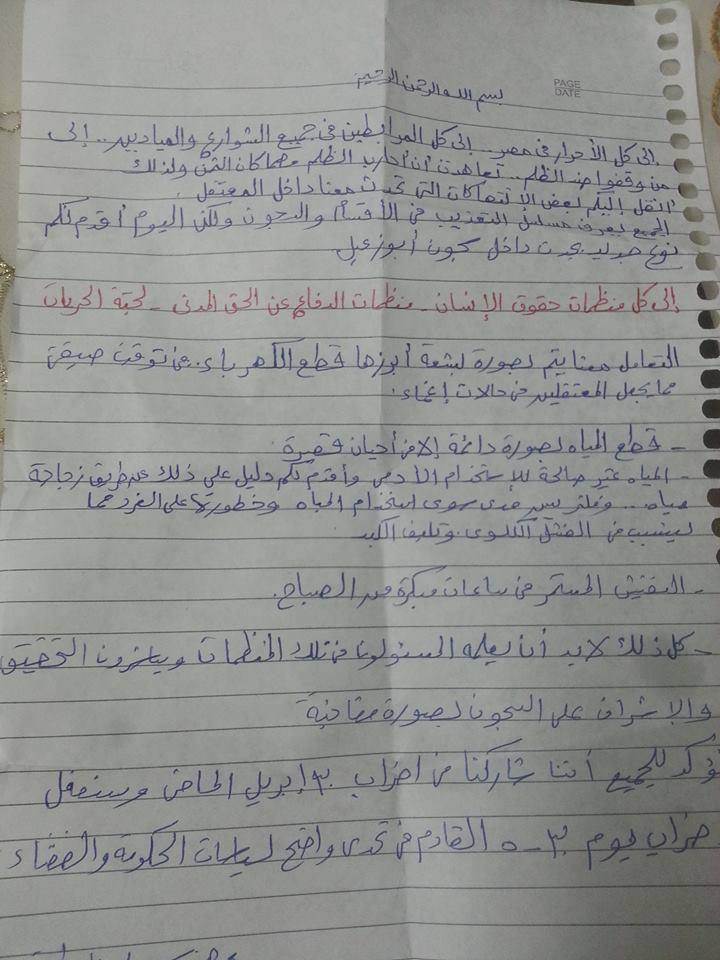 PAGE
DATE
بسم الله الرحمن الرحيم
إلى كل الأحرار في مصر.. إلى كل المرابطين في جميع الشوارع والميادين.. إلى
من وقفوا ضد الظلم.. تعاهدت أن أحارب الظلم مهما كان الثمن ولذلك
أنقل إليكم بعض الانتهاكات التي تحدث معنا داخل المعتقل
الجميع يعرف مسلسل التعذيب في الأقسام والسجون ولكن اليوم أقدم لكم
نوع جديد يحدث داخل سجون أبو زعبل
إلى كل منظمات حقوق الإنسان - منظمات الدفاع عن الحق المدني - لجنة الحريات
التعامل معنا يتم بصورة بشعة أبرزها قطع الكهرباء في توقيت صيفي
مما يجعل المعتقلين في حالات إغماء.
- قطع المياه بصورة دائمة إلا في أحيان قصيرة
- المياه غير صالحة للاستخدام الآدمي وأقدم لكم دليل على ذلك عن طريق زجاجة
مياه... وفلتر يبين مدى سوى استخدام المياه وخطورتها على الفرد مما
ليتسبب في الفشل الكلوى وتليف الكبد
- التفتيش المستمر في ساعات مبكرة من الصباح.
- كل ذلك لابد أن يعلمه المسئولون في تلك المنظمات ويباشرون التحقيق
والإشراف على السجون بصورة مفاجئة
نؤكد للجميع أننا شاركنا في اضراب ٣٠ إبريل الماضي وسنفعل
ضراب يوم ٣٠-٥ القادم في تحدى واضح لسياسات الحكومة والقضاء